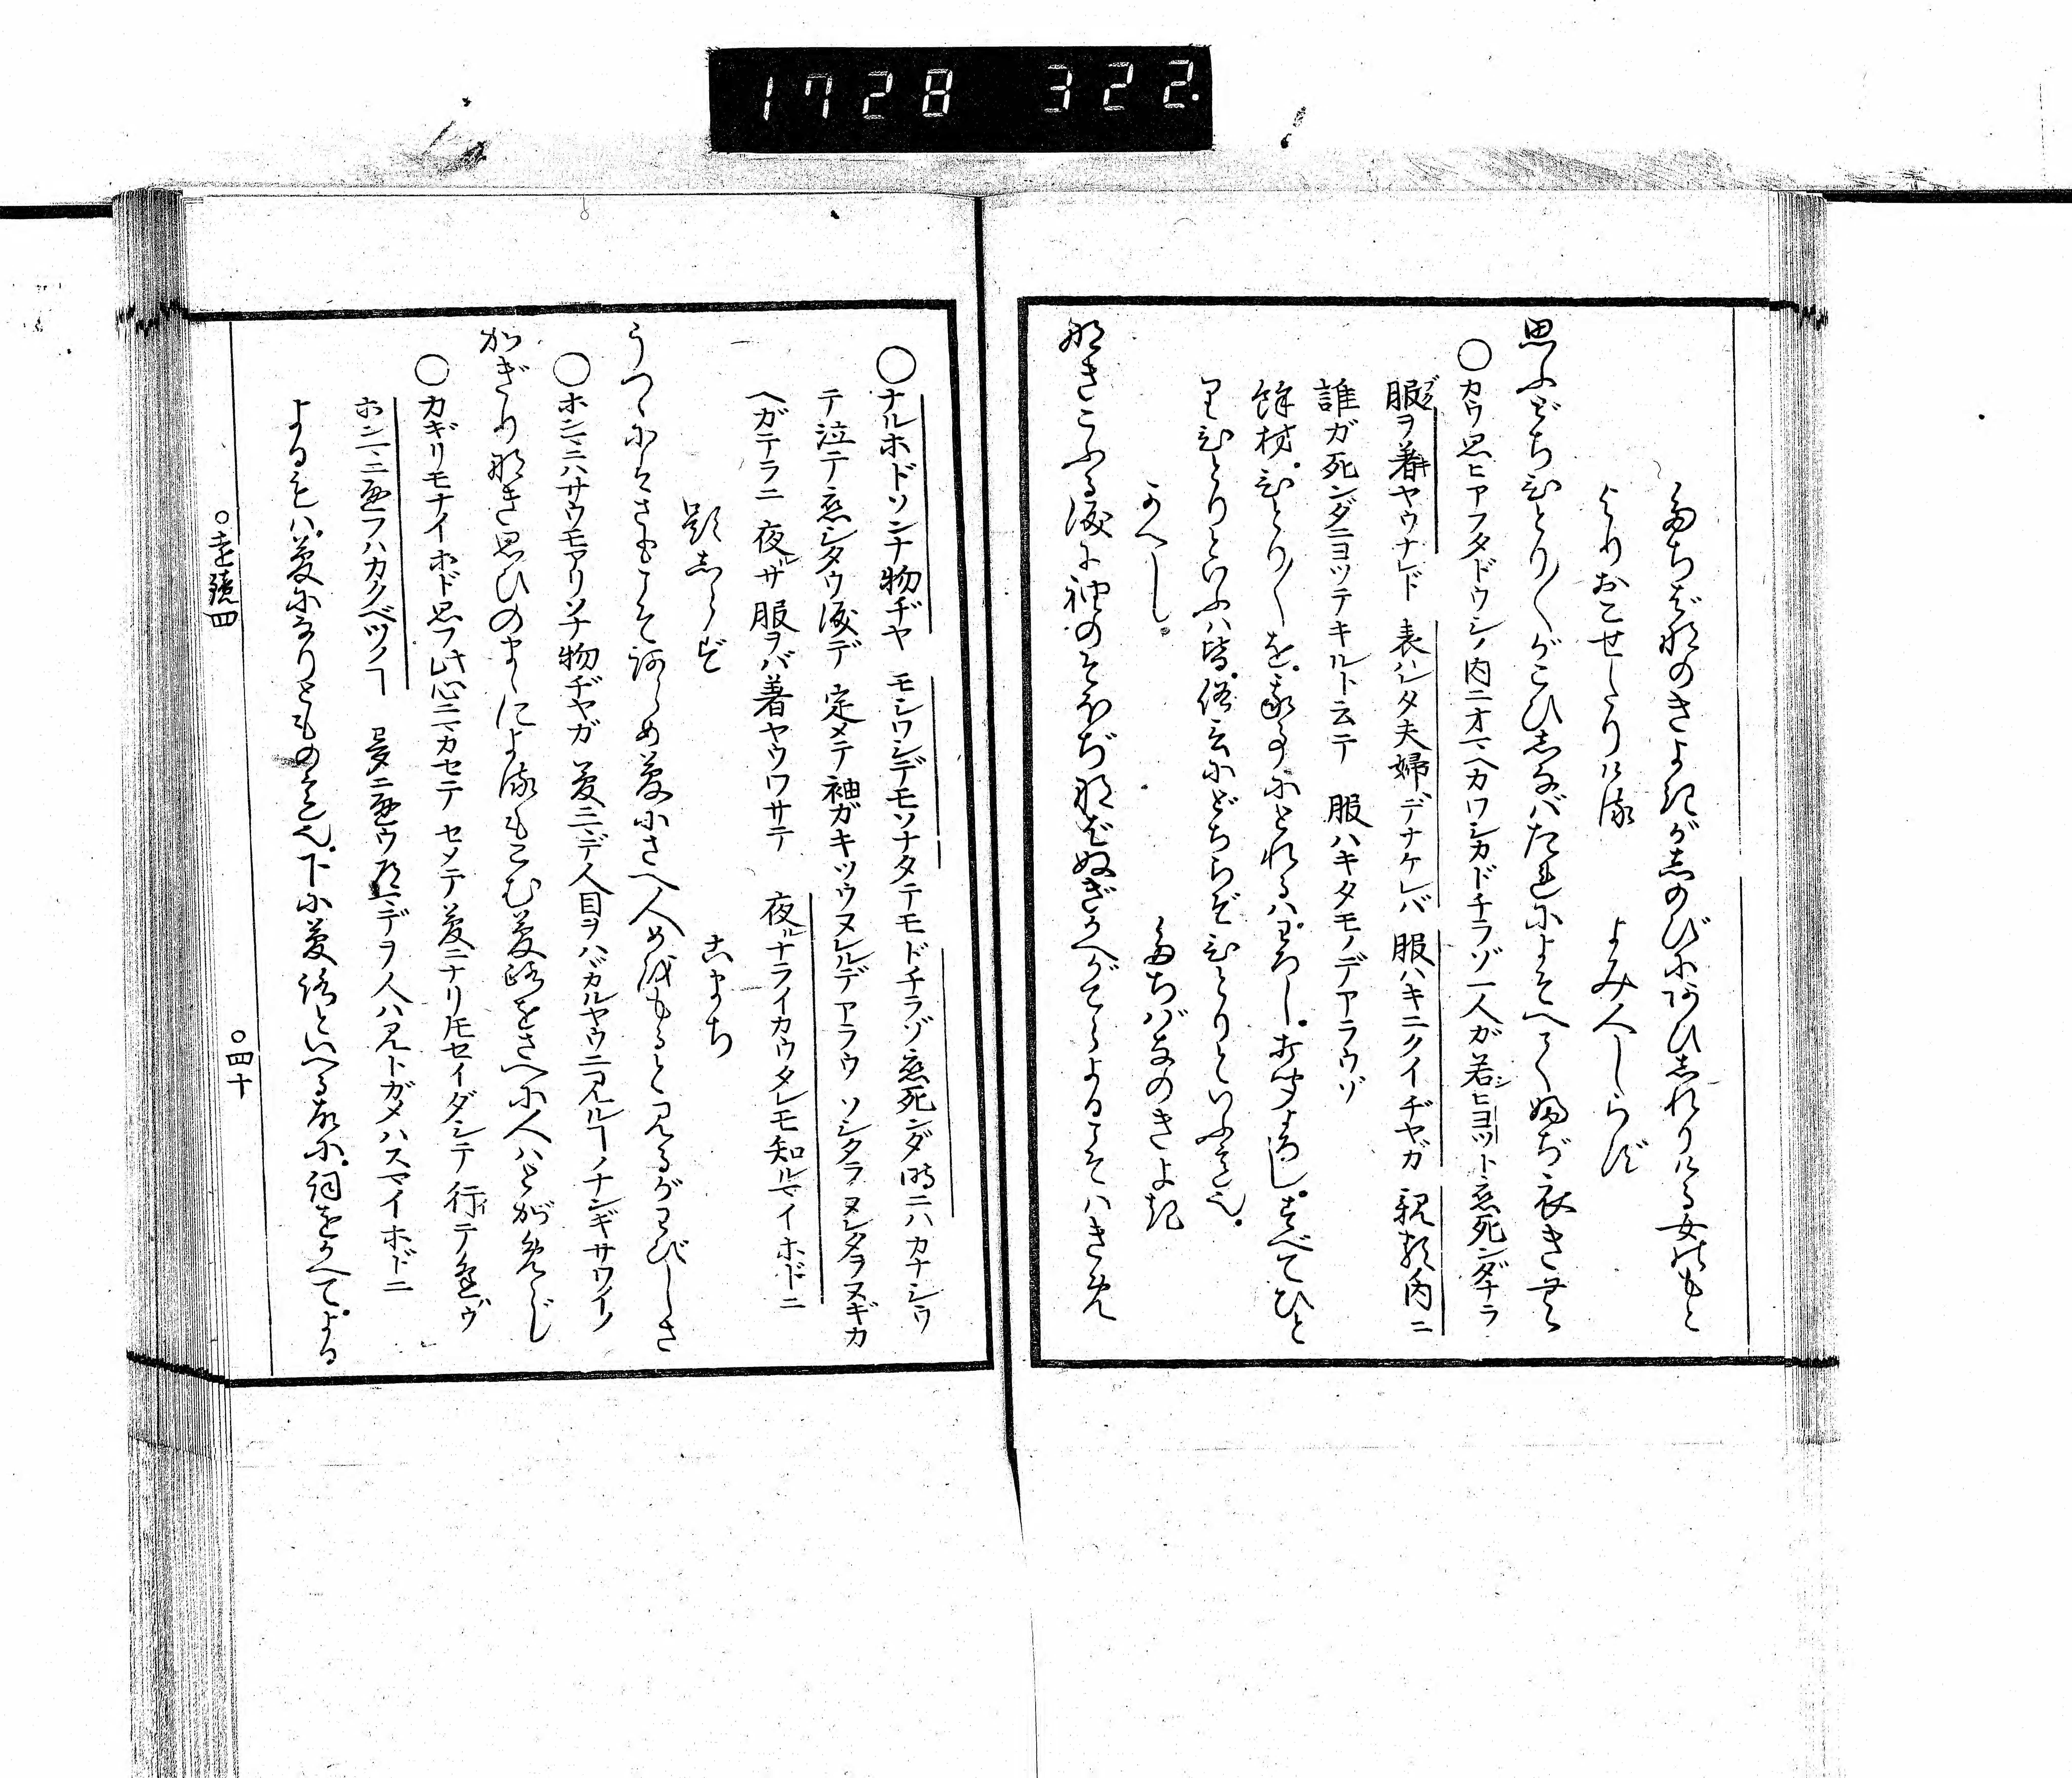 1728 322.
たちばなのきよきがしのびにあひしれりける女のもと
よりおこせたりける　よみ人しらず
思ふどちひとり〳〵がこひしなばたれによそへてふぢ衣きむ
○カウ思ヒアフタドウシノ内ニオマヘカワシカドチラゾ一人ガ若シヒヨツト恋死ンダナラ
服ブクヲ着キヤウナレド　表ハレタ夫婦デナケレバ　服ハキニクイヂヤガ　親類内ニ
誰ガ死ンダニヨツテキルト云テ　服ハキタモノデアラウゾ
餘材ひとり〳〵を
りひとりといふハ皆俗云にどちらぞひとりといふこと也
かへし　たちばなのきよき
なきこふる涙に袖のそほぢなばぬぎかへがてらよるこそハきめ
○ナルホドソンナ物ヂヤ　モシワシデモソナタデモドチラゾ恋死ンダ時ニハカナシウ
テ泣テ恋シタウ涙デ　定メテ袖ガキツウヌレルデアラウ　ソシタラヌレタヲヌギカ
ヘガテラニ　夜ルサ服ヲバ着ヤウワサテ　夜ルナライカウタレモ知ルマイホドニ
題しらず　こまち
うつゝにハさもこそあらめ夢にさへ人めをもると見るがわびしさ
○ホンニハサウモアリソナ物ヂヤガ　夢ニマデ人目ヲハバカルヤウニ見ルヿノナンギサワイノ
かぎりなき思ひのまゝによるもこむ夢路をさへに人ハとがめじ
○カギリモナイホド思フ此心ニマカセテ　セメテ夢ニナリトモセイダシテ行イテ逢ハウゾ
ホンマニ逢フハカクベツノヿ　夢ニ逢ウ マデヲ人ハ見トガメハスマイホドニ
よるもハ夢になりともの意也下に夢路といへる故に詞をかへてよる
○遠鏡四　○四十